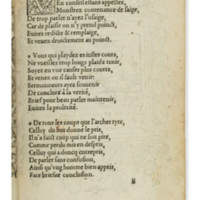 En conseil estans appellez,
Monstrez contenance de saige,
De trop parler n'ayez l'usage,
Car de plaisir on n'y prend poinct,
Fuirez redicte & remplaige,
Et venez droictement au poinct.
Vous qui playdez en iustes cours,
Ne vueillez trop longz plaictz tenir,
Soyez en voz causes plus courts,
Et venez ou il fault venir:
Sermonneurs ayez souuenir
De conclure à la verité,
Brief pour bien parler maintenir,
Euitez la prolixité.
De tous les coups que l'archer tyre,
Celluy du but donne le pris,
Et n'a faict coup qui ne soit pire,
Comme perdu mis en despris,
Celluy qui a doncq entrepris,
De parler sans confusion,
Ainsi qu'ung homme bien appris,
Face briefue conclusion.